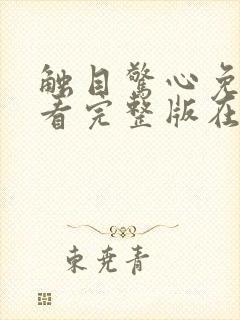 触目驚心免
看完整版在
東堯青